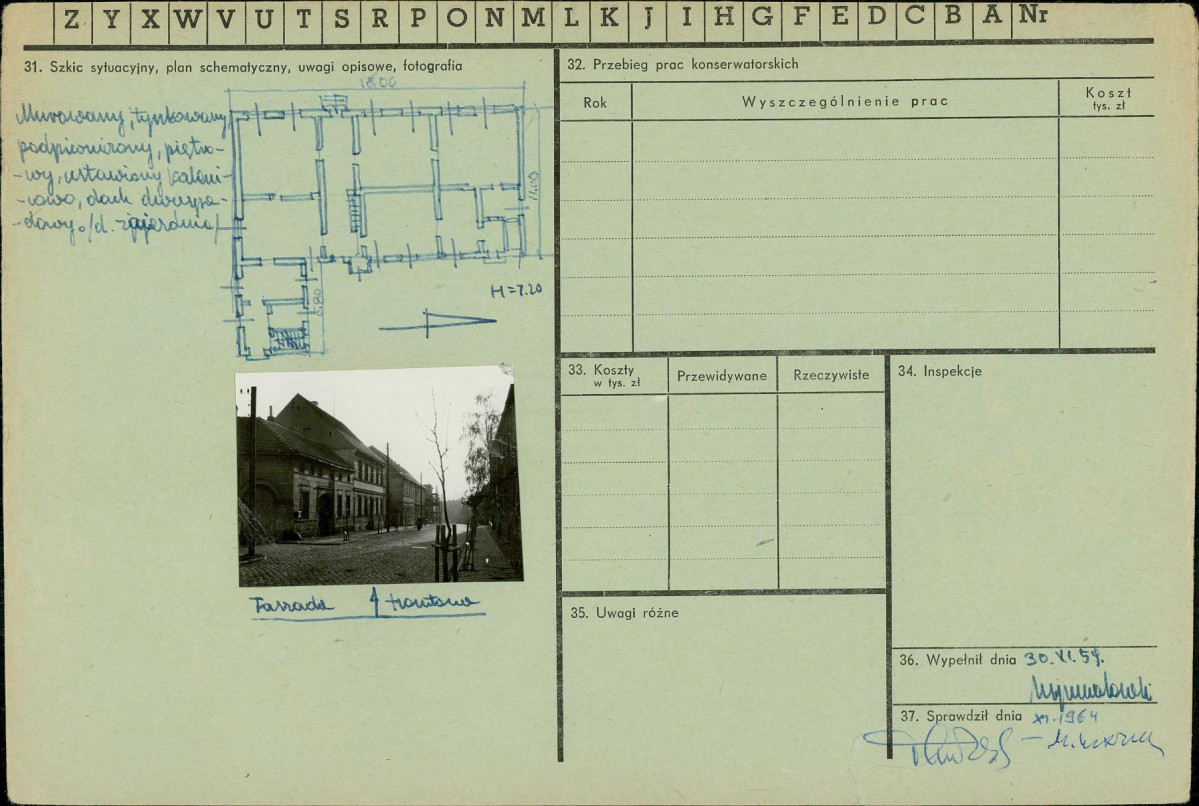 Z Y X W V U T S R P O N M L K J I H G F E D C B A Nr
31. Szkic sytuacyjny, plan schematyczny, uwagi opisowe, fotografia
18.00
Murowany, tynkowany,
podpiwniczony, piętro-
-wy, ustawiony kaleni-
-cowo, dach dwuspa-
-dowy. /d. zajezdnia/
11.00
6.80
H = 7.20
Fassada frontowa
32. Przebieg prac konserwatorskich
Rok
Wyszczególnienie prac
Koszt
tys. zł
33. Koszty
w tys. zł
Przewidywane
Rzeczywiste
34. Inspekcje
35. Uwagi różne
36. Wypełnił dnia 30.XI.59.
37. Sprawdził dnia XI.1964